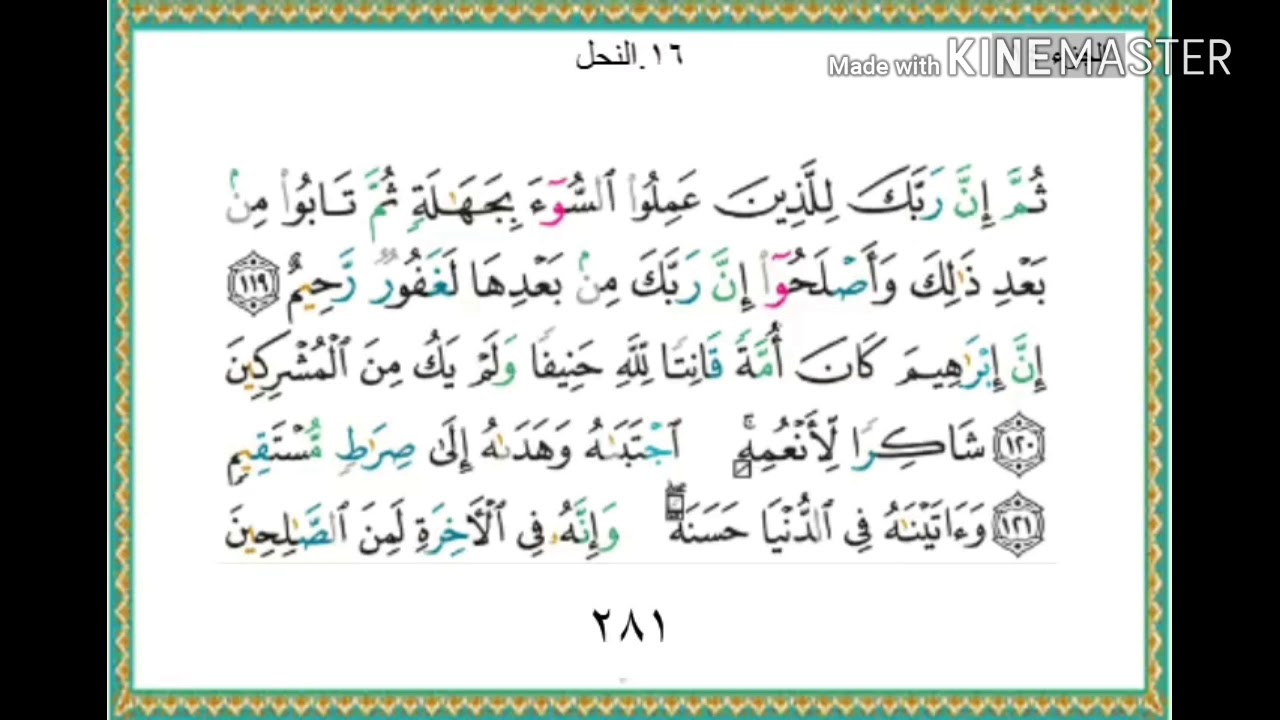 ١٦.النحل
Made with KINEMASTER
ثُمَّ إِنَّ رَبَّكَ لِلَّذِينَ عَمِلُوا۟ ٱلسُّوٓءَ بِجَهَـٰلَةٍ ثُمَّ تَابُوا۟ مِنۢ
بَعْدِ ذَٰلِكَ وَأَصْلَحُوٓا۟ إِنَّ رَبَّكَ مِنۢ بَعْدِهَا لَغَفُورٌ رَّحِيمٌ ١١٩
إِنَّ إِبْرَٰهِيمَ كَانَ أُمَّةً قَانِتًا لِّلَّهِ حَنِيفًا وَلَمْ يَكُ مِنَ ٱلْمُشْرِكِينَ
١٢٠ شَاكِرًا لِّأَنْعُمِهِ ۚ ٱجْتَبَىٰهُ وَهَدَىٰهُ إِلَىٰ صِرَٰطٍ مُّسْتَقِيمٍ
١٢١ وَءَاتَيْنَـٰهُ فِى ٱلدُّنْيَا حَسَنَةً ۖ وَإِنَّهُۥ فِى ٱلْـَٔاخِرَةِ لَمِنَ ٱلصَّـٰلِحِينَ
٢٨١